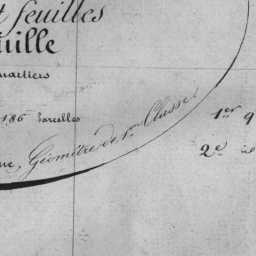 t feuilles
uille
uartiers
186 Parcelles
ue, Géomètre de 1re Classe
1er q
2e